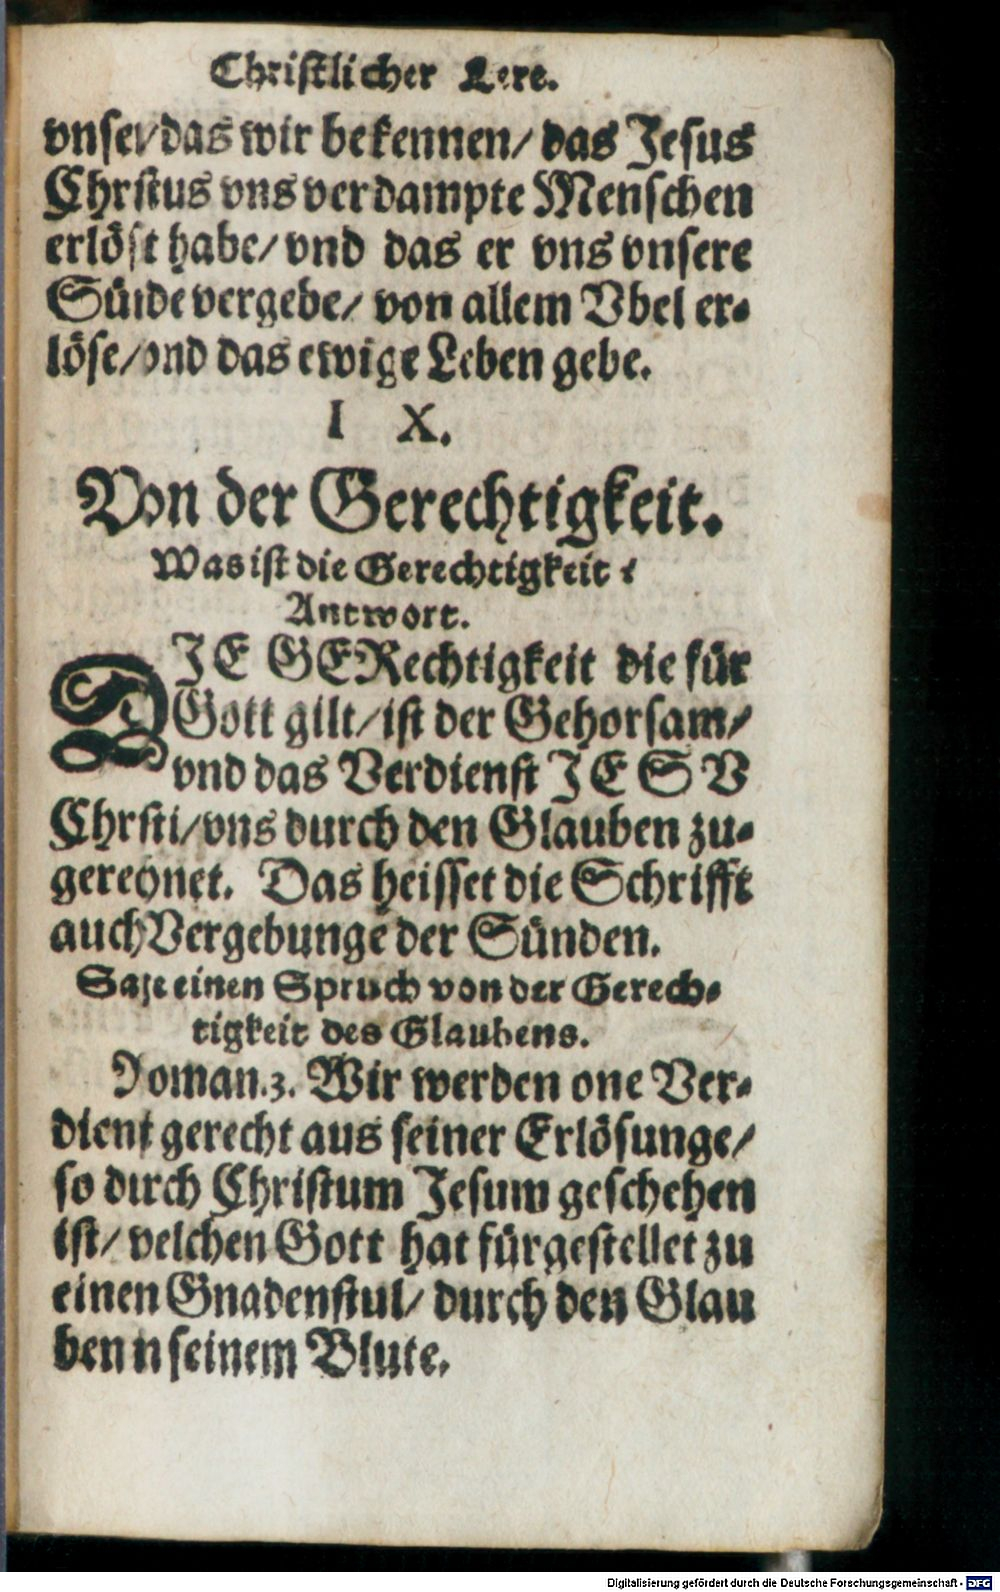 Christlicher Lere.
vnser/das wir bekennen/ das Jesus
Chrstus vns verdampte Menschen
erlöst habe/ vnd das er vns vnsere
Sünde vergebe/ von allem Vbel er-
löse/vnd das ewige Leben gebe.
I X.
Von der Gerechtigkeit.
Was ist die Gerechtigkeit?
Antwort.
DJE GERechtigkeit die für
Gott gilt/ist der Gehorsam/
vnd das Verdienst JESV
Chrsti/vns durch den Glauben zu-
gerechnet. Das heisset die Schrifft
auch Vergebunge der Sünden.
Sage einen Spruch von der Gerech-
tigkeit des Glaubens.
Roman.3. Wir werden one Ver-
dienst gerecht aus seiner Erlösunge/
so durch Christum Jesum geschehen
ist/ welchen Gott hat fürgestellet zu
einen Gnadenstul/ durch den Glau
ben in seinem Blute.
Digitalisierung gefördert durch die Deutsche Forschungsgemeinschaft - DFG